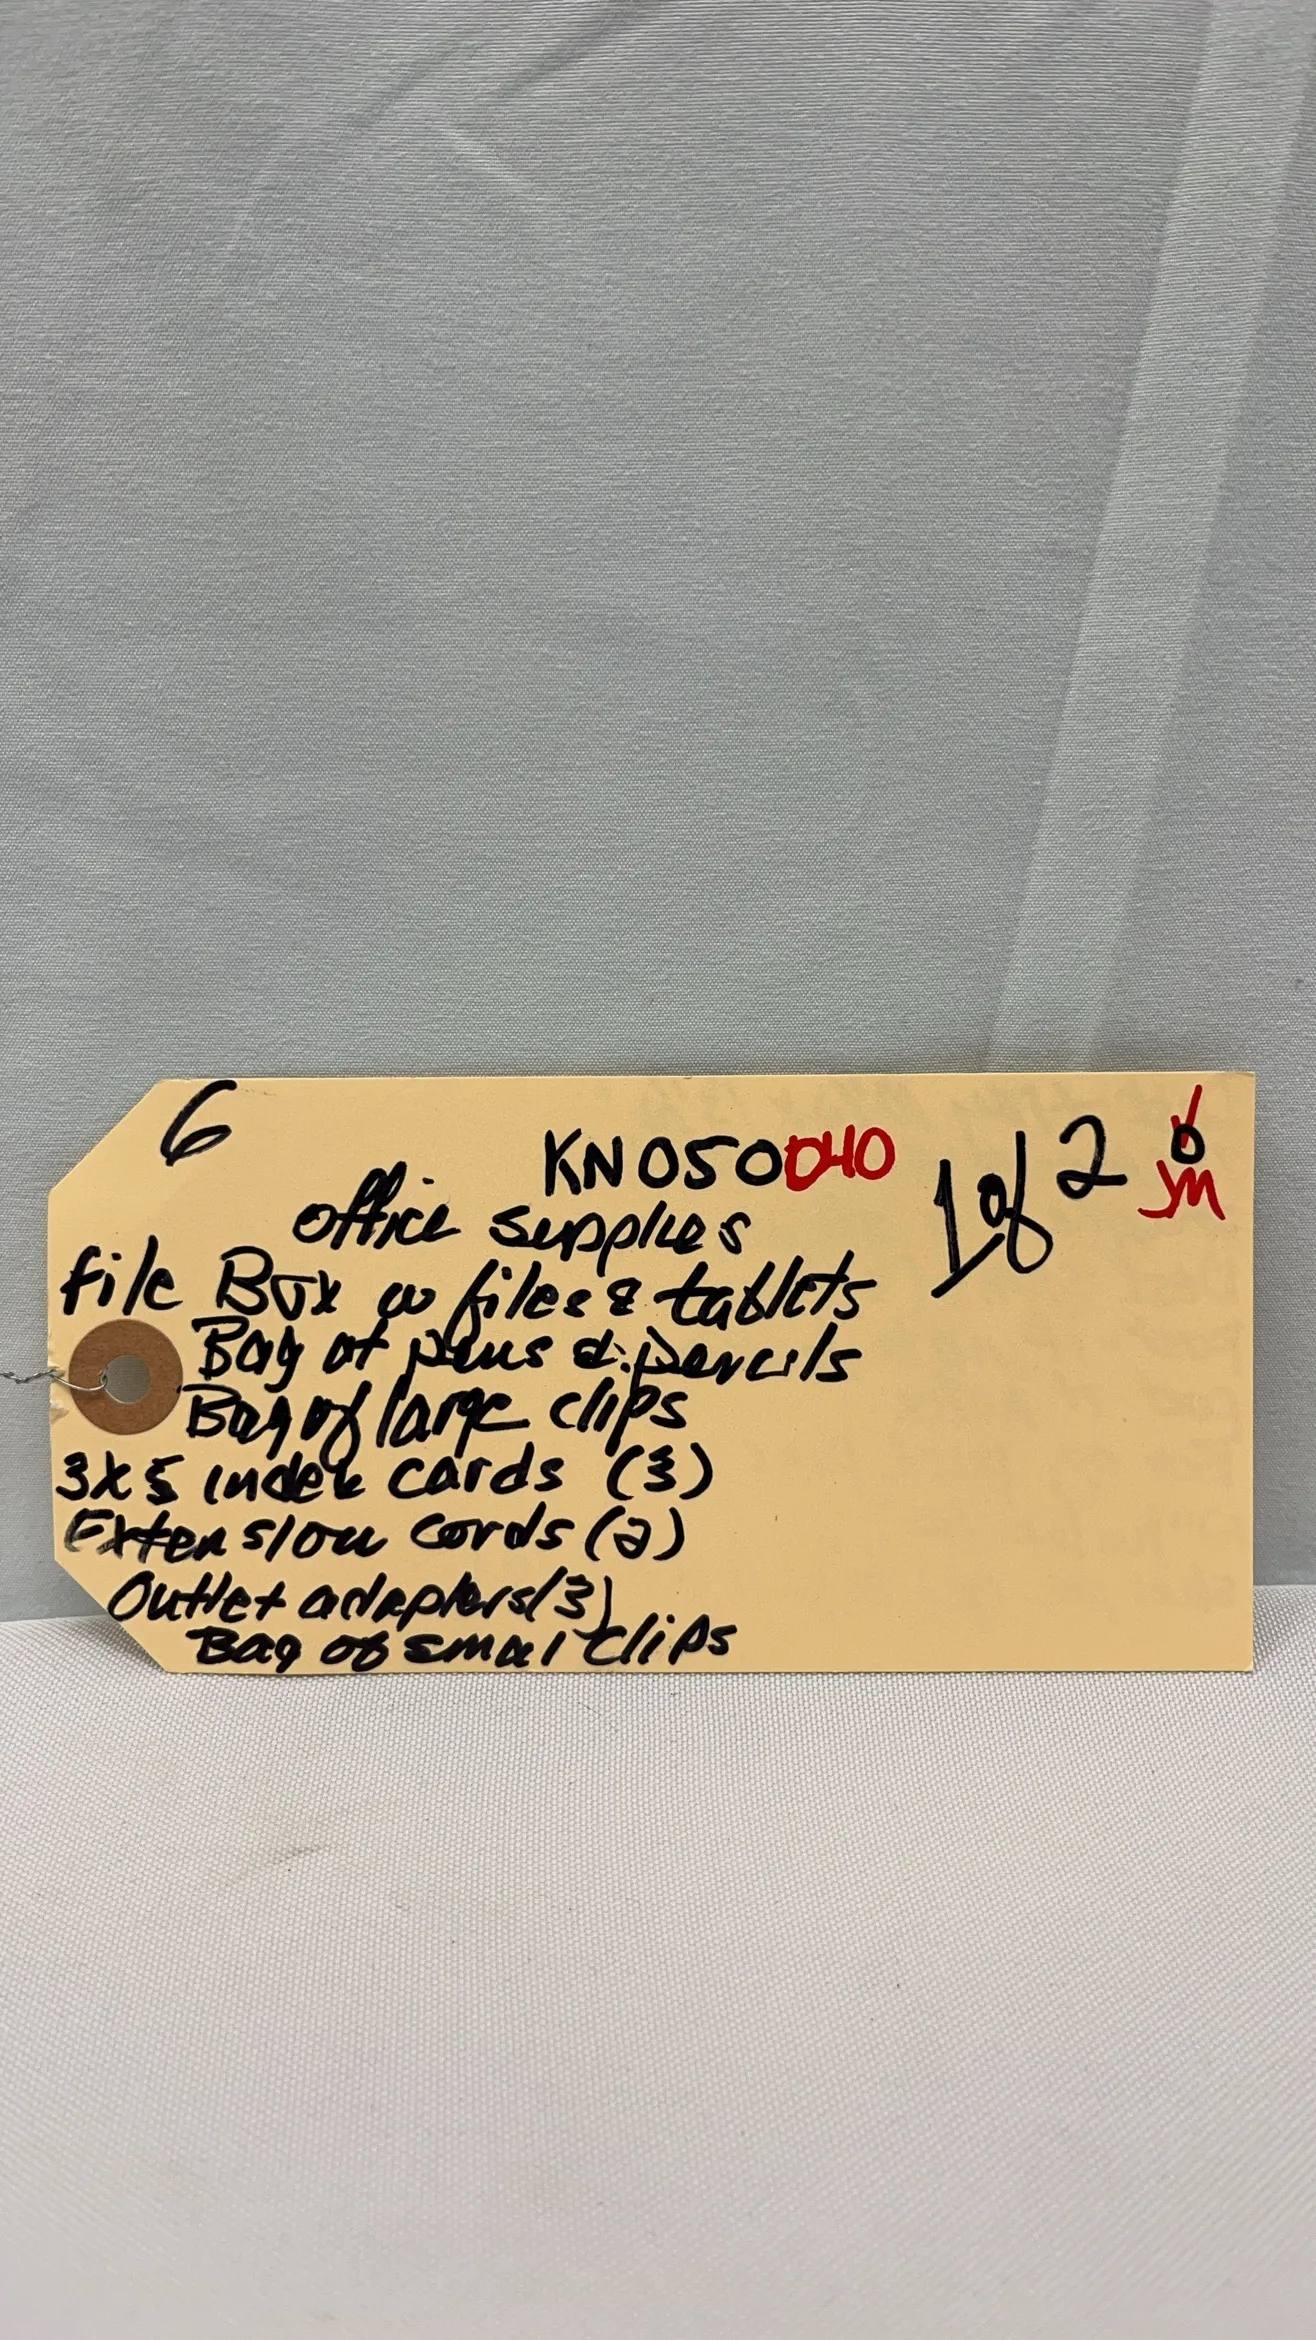 6
KN050040
1 of 2
6
JM
office supplies
file Box w files & tablets
Bag of pens & pencils
Bag of large clips
3x5 index cards (3)
Extension cords (2)
Outlet adapters (3)
Bag of small clips